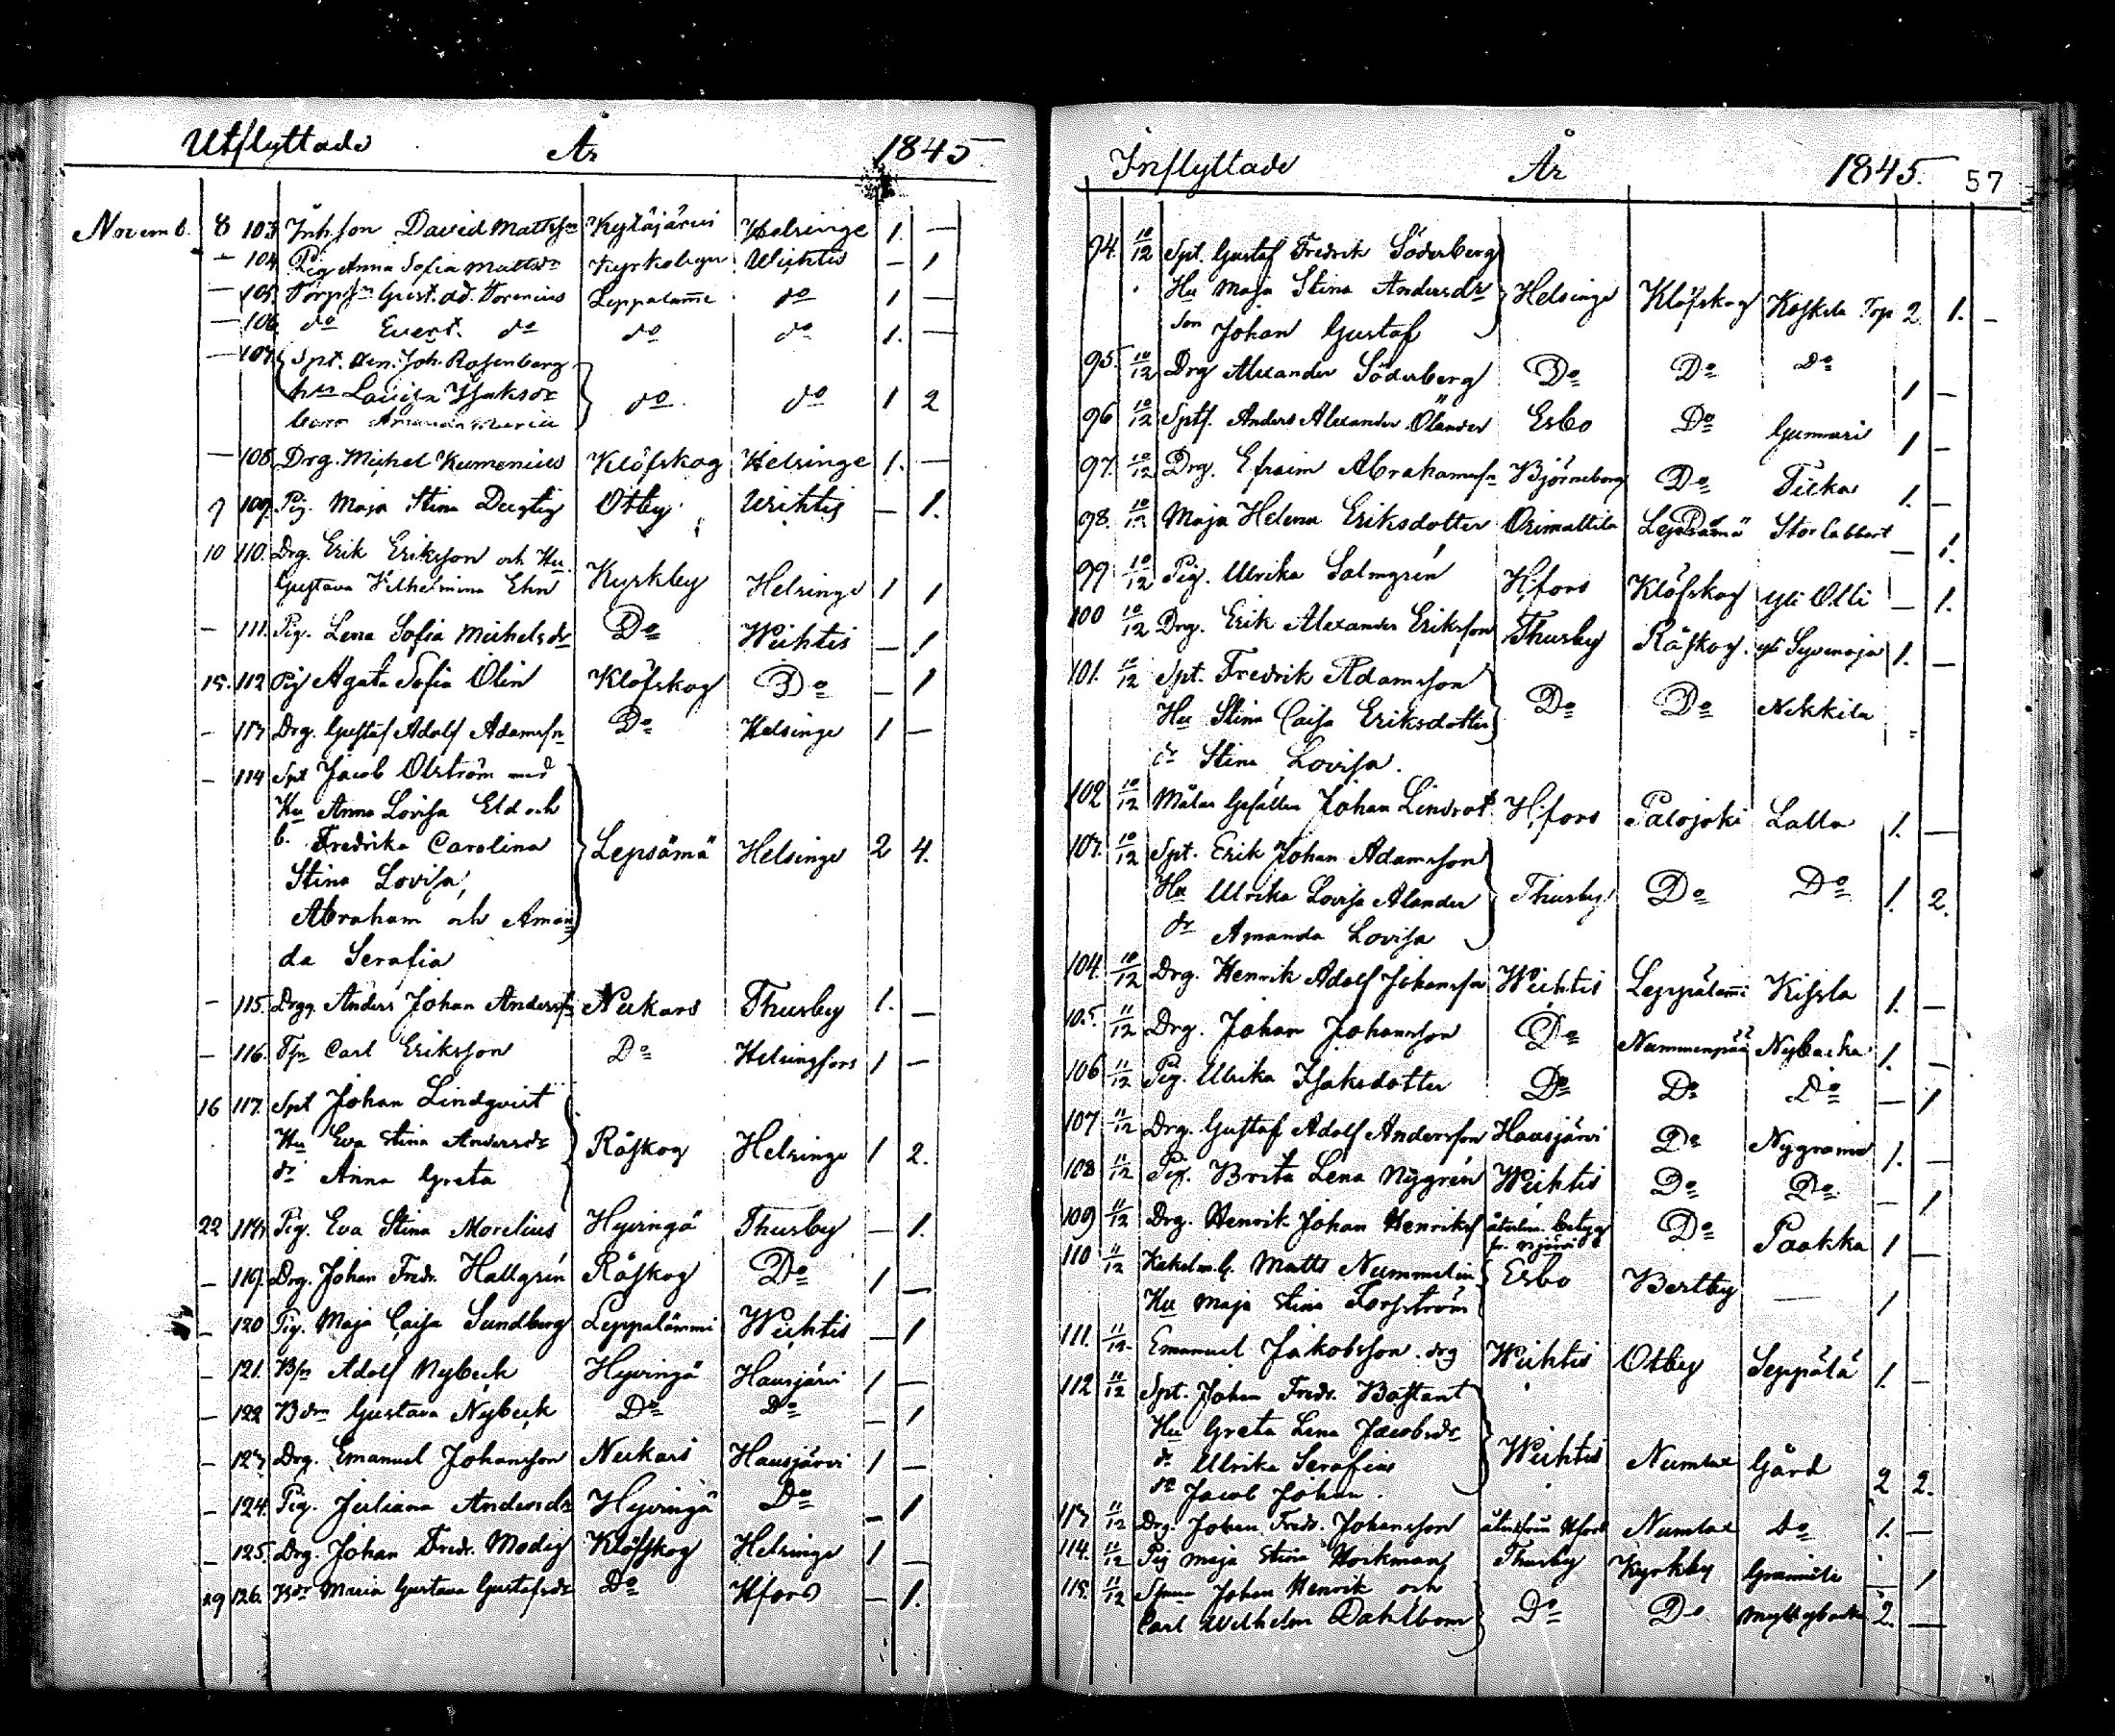 Utflyttade År 1845
Novemb. 8 103 Inh.son David Mattsson Kytäjärvi Helsinge 1. —
— 104 Pig Anna Sofia Mattsdr Kyrkobyn Wichtis — 1
— 105. Torpsn Gust. Ad. Torenius Leppalame do 1 —
— 106. do Evert. do do do 1. —
— 107. Spt. Joh. Rosenberg
hu Lovisa Isaksdr do do 1 2
barn Amanda Maria
— 108. Drg. Michel Kumenius Klöfskog Helsinge 1. —
9 109. Pig. Maja Stina Dugtig Otby Wichtis — 1.
10 110. Drg. Erik Eriksson och Hu
Gustava Vilhelmina Ehn Kyrkby Helsinge 1 1
— 111. Pig. Lena Sofia Michelsdr Do Wichtis — 1
15. 112 Pig Agata Sofia Olin Klöfskog Do — 1
— 113 Drg. Gustaf Adolf Adamssn Do Helsinge 1 —
— 114 Spt Jacob Olström med
Hu Anna Lovisa Eld och
b. Fredrika Carolina Lepsämä Helsinge 2 4.
Stina Lovisa,
Abraham och Aman
da Serafia
— 115. Drg. Anders Johan Anderssn Nukars Thusby 1. —
— 116. Carl Eriksson Do Helsingfors 1 —
16 117. Spt Johan Lindqvist
Hu Eva Stina Andersdr Råskog Helsinge 1 2.
dr Anna Greta
22 118. Pig. Eva Stina Morelius Hyvingä Thusby — 1.
— 119. Drg. Johan Fredr. Hallgrén Råskog Do 1 —
— 120 Pig. Maja Caisa Sundberg Leppälämmi Wichtis — 1
— 121. Bsn Adolf Nybeck Hyvingä Hausjärvi 1 —
— 122 Bdr Gustava Nybeck Do Do — 1
— 123 Drg. Emanuel Johansson Nukari Hausjärvi 1 —
— 124. Pig. Juliana Andersdr Hyvingä Do — 1
— 125. Drg. Johan Fredr. Modig Klöfskog Helsinge 1 —
29 126. Bdr Maria Gustava Gustafsdr Do Hfors — 1.
Inflyttade År 1845. 57
94. 10/12 Spt. Gustaf Fredrik Söderberg
Hu Maja Stina Andersdr Helsinge Klöfskog Koskela Torp 2. 1. —
son Johan Gustaf
95. 10/12 Drg Alexander Söderberg Do Do Do 1 —
96 10/12 Anders Alexander Ölander Esbo Do Gunnari 1 —
97. 10/12 Drg. Efraim Abrahamssn Björneborg Do Ticka 1. —
98. 10/12 Maja Helena Eriksdotter Orimattila Lepsämä Storlabbart — 1.
99 10/12 Pig. Ulrika Salmgrén H:fors Klöfskog Yli Olli — 1.
100 10/12 Drg. Erik Alexander Eriksson Thusby Råskog. yli Syvenoja 1. —
101. 10/12 Spt. Fredrik Adamsson
Hu Stina Caisa Eriksdotter Do Do Nikkila
dr Stina Lovisa.
102 10/12 Målar Gesällen Johan Lindrot H:fors Palojoki Lalla 1. —
103. 10/12 Spt. Erik Johan Adamsson
Hu Ulrika Lovisa Alander Thusby Do Do 1. 2.
dr Amanda Lovisa
104. 10/12 Drg. Henrik Adolf Johansson Wichtis Leppälami Kissla 1. —
105. 11/12 Drg. Johan Johansson Do Nummenpää Nybacka 1. —
106 11/12 Pig. Ulrika Isaksdotter Do Do Do — 1
107 11/12 Drg. Gustaf Adolf Andersson Hausjärvi Do 1. —
108 11/12 Pig. Brita Lena Nygrén Wichtis Do Do — 1
109 11/12 Drg. Henrik Johan Henrikss betyg Do Paakka 1 —
110 11/12 Matts Nummelin Esbo Bertby —
Hu Maja Stina Forsström 1
111. 11/12 Emanuel Jakobsson drg Wichtis Otby Seppälä 1. —
112 11/12 Spt. Johan Fredr. Bastant
Hu Greta Lena Jacobsdr
dr Ulrika Serafina Wichtis Numlax Gård 2 2.
sn Jacob Johan.
113 11/12 Drg. Johan Fredr. Johansson Hfors Numlax Do 1. —
114. 11/12 Pig Maja Stina Workman Thusby Kyrkby — 1
115. 11/12 Johan Henrik och
Carl Wilhelm Dahlbom Do Do Myllybacka 2. —